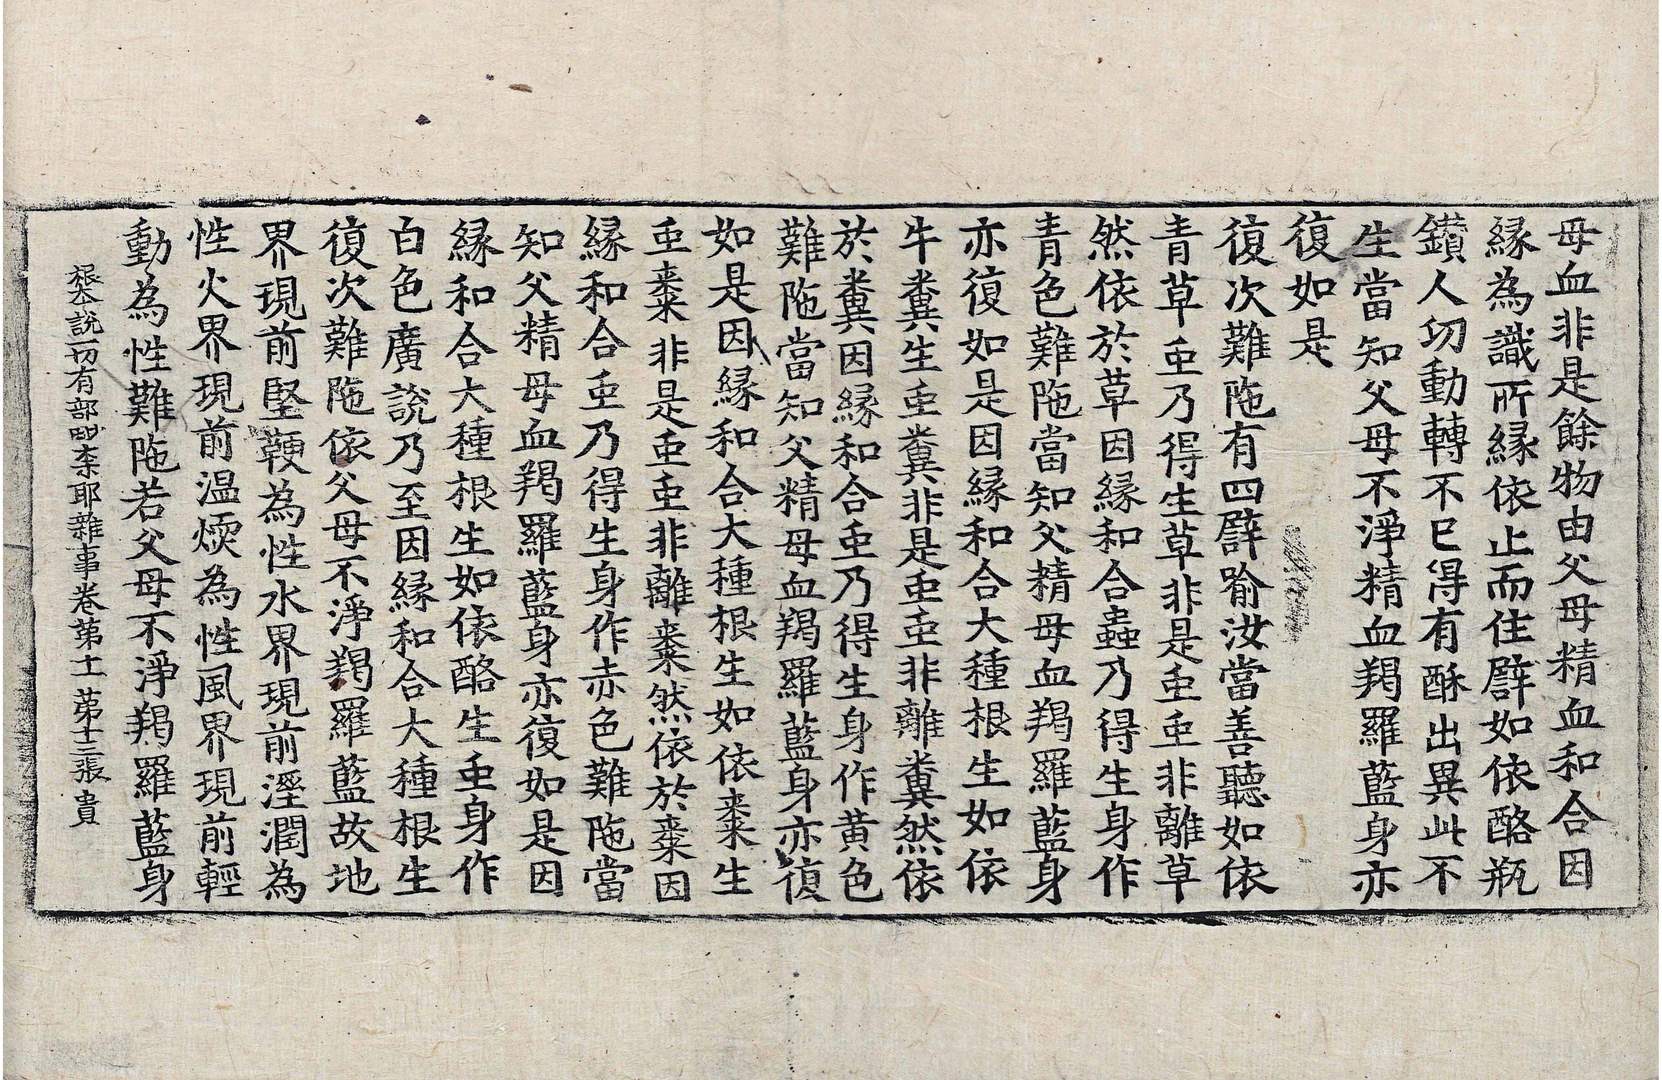 母血非是餘物由父母精血和合因
縁為識所縁依止而住譬如依酪瓶
鑽人㓛動轉不已得有酥出異此不
生當知父母不淨精血羯羅藍身亦
復如是
復次難陁有四譬喻汝當善聽如依
青草䖝乃得生草非是䖝䖝非離草
然依於草因縁和合蟲乃得生身作
青色難陁當知父精母血羯羅藍身
亦復如是因縁和合大種根生如依
牛糞生䖝糞非是䖝䖝非離糞然依
於糞因縁和合䖝乃得生身作黄色
難陁當知父精母血羯羅藍身亦復
如是因縁和合大種根生如依棗生
䖝棗非是䖝䖝非離棗然依於棗因
縁和合䖝乃得生身作赤色難陁當
知父精母血羯羅藍身亦復如是因
縁和合大種根生如依酪生䖝身作
白色廣說乃至因縁和合大種根生
復次難陁依父母不淨羯羅藍故地
界現前堅鞕為性水界現前溼潤為
性火界現前温煗為性風界現前輕
動為性難陁若父母不淨羯羅藍身
根本說一切有部毗柰耶雜事卷第十一 第十三張 貴